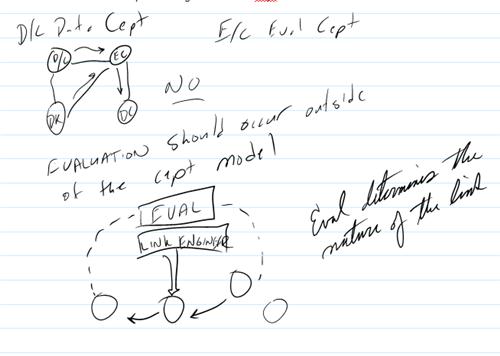 D/C Data Cept
E/C Eval Cept
D/C
EC
DK
DC
NO
EVALUATION should occur outside
of the cept model
EVAL
LINK ENGINEER
Eval determins the
nature of the link